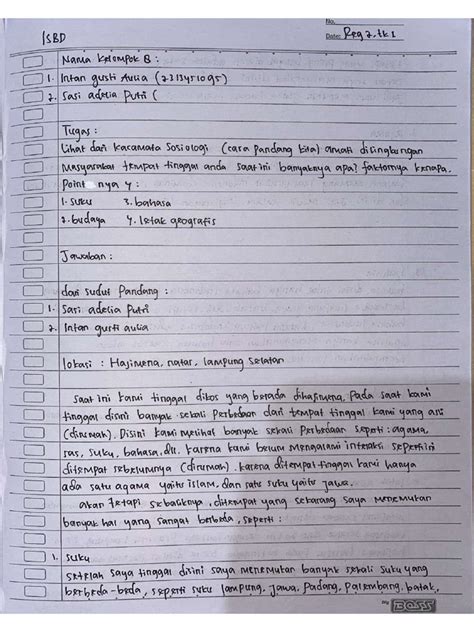 No.
ISBD Date: Reg 2. tk 1
Nama Kelompok B :
1. Intan gusti Aulia (2313451095)
2. Sasi adelia Putri (
Tugas :
Lihat dari kacamata Sosiologi (cara pandang kita) amati dilingkungan
Masyarakat tempat tinggal anda saat ini banyaknya apa? faktornya kenapa.
Point nya 4 :
1. suku 3. bahasa
2. budaya 4. letak geografis
Jawaban :
dari sudut Pandang :
1. Sasi adelia Putri
2. Intan gusti aulia
lokasi : Hajimena, natar, lampung selatan
saat ini kami tinggal dikos yang berada dihajimena, Pada saat kami
tinggal disini banyak sekali Perbedaan dari tempat tinggal kami yang asli
(dirumah). Disini kami melihat banyak sekali Perbedaan seperti : agama,
ras, suku, bahasa, dll. karena kami belum mengalami interaksi seperti ini
ditempat sebelumnya (dirumah). karena ditempat tinggal kami hanya
ada satu agama yaitu islam, dan satu suku yaitu jawa.
akan tetapi sebaliknya, ditempat yang sekarang saya menemukan
banyak hal yang sangat berbeda, seperti :
1. suku
setelah saya tinggal disini saya menemukan banyak sekali suku yang
berbeda-beda, seperti suku lampung, Jawa, Padang, Palembang, batak,
my BOSS